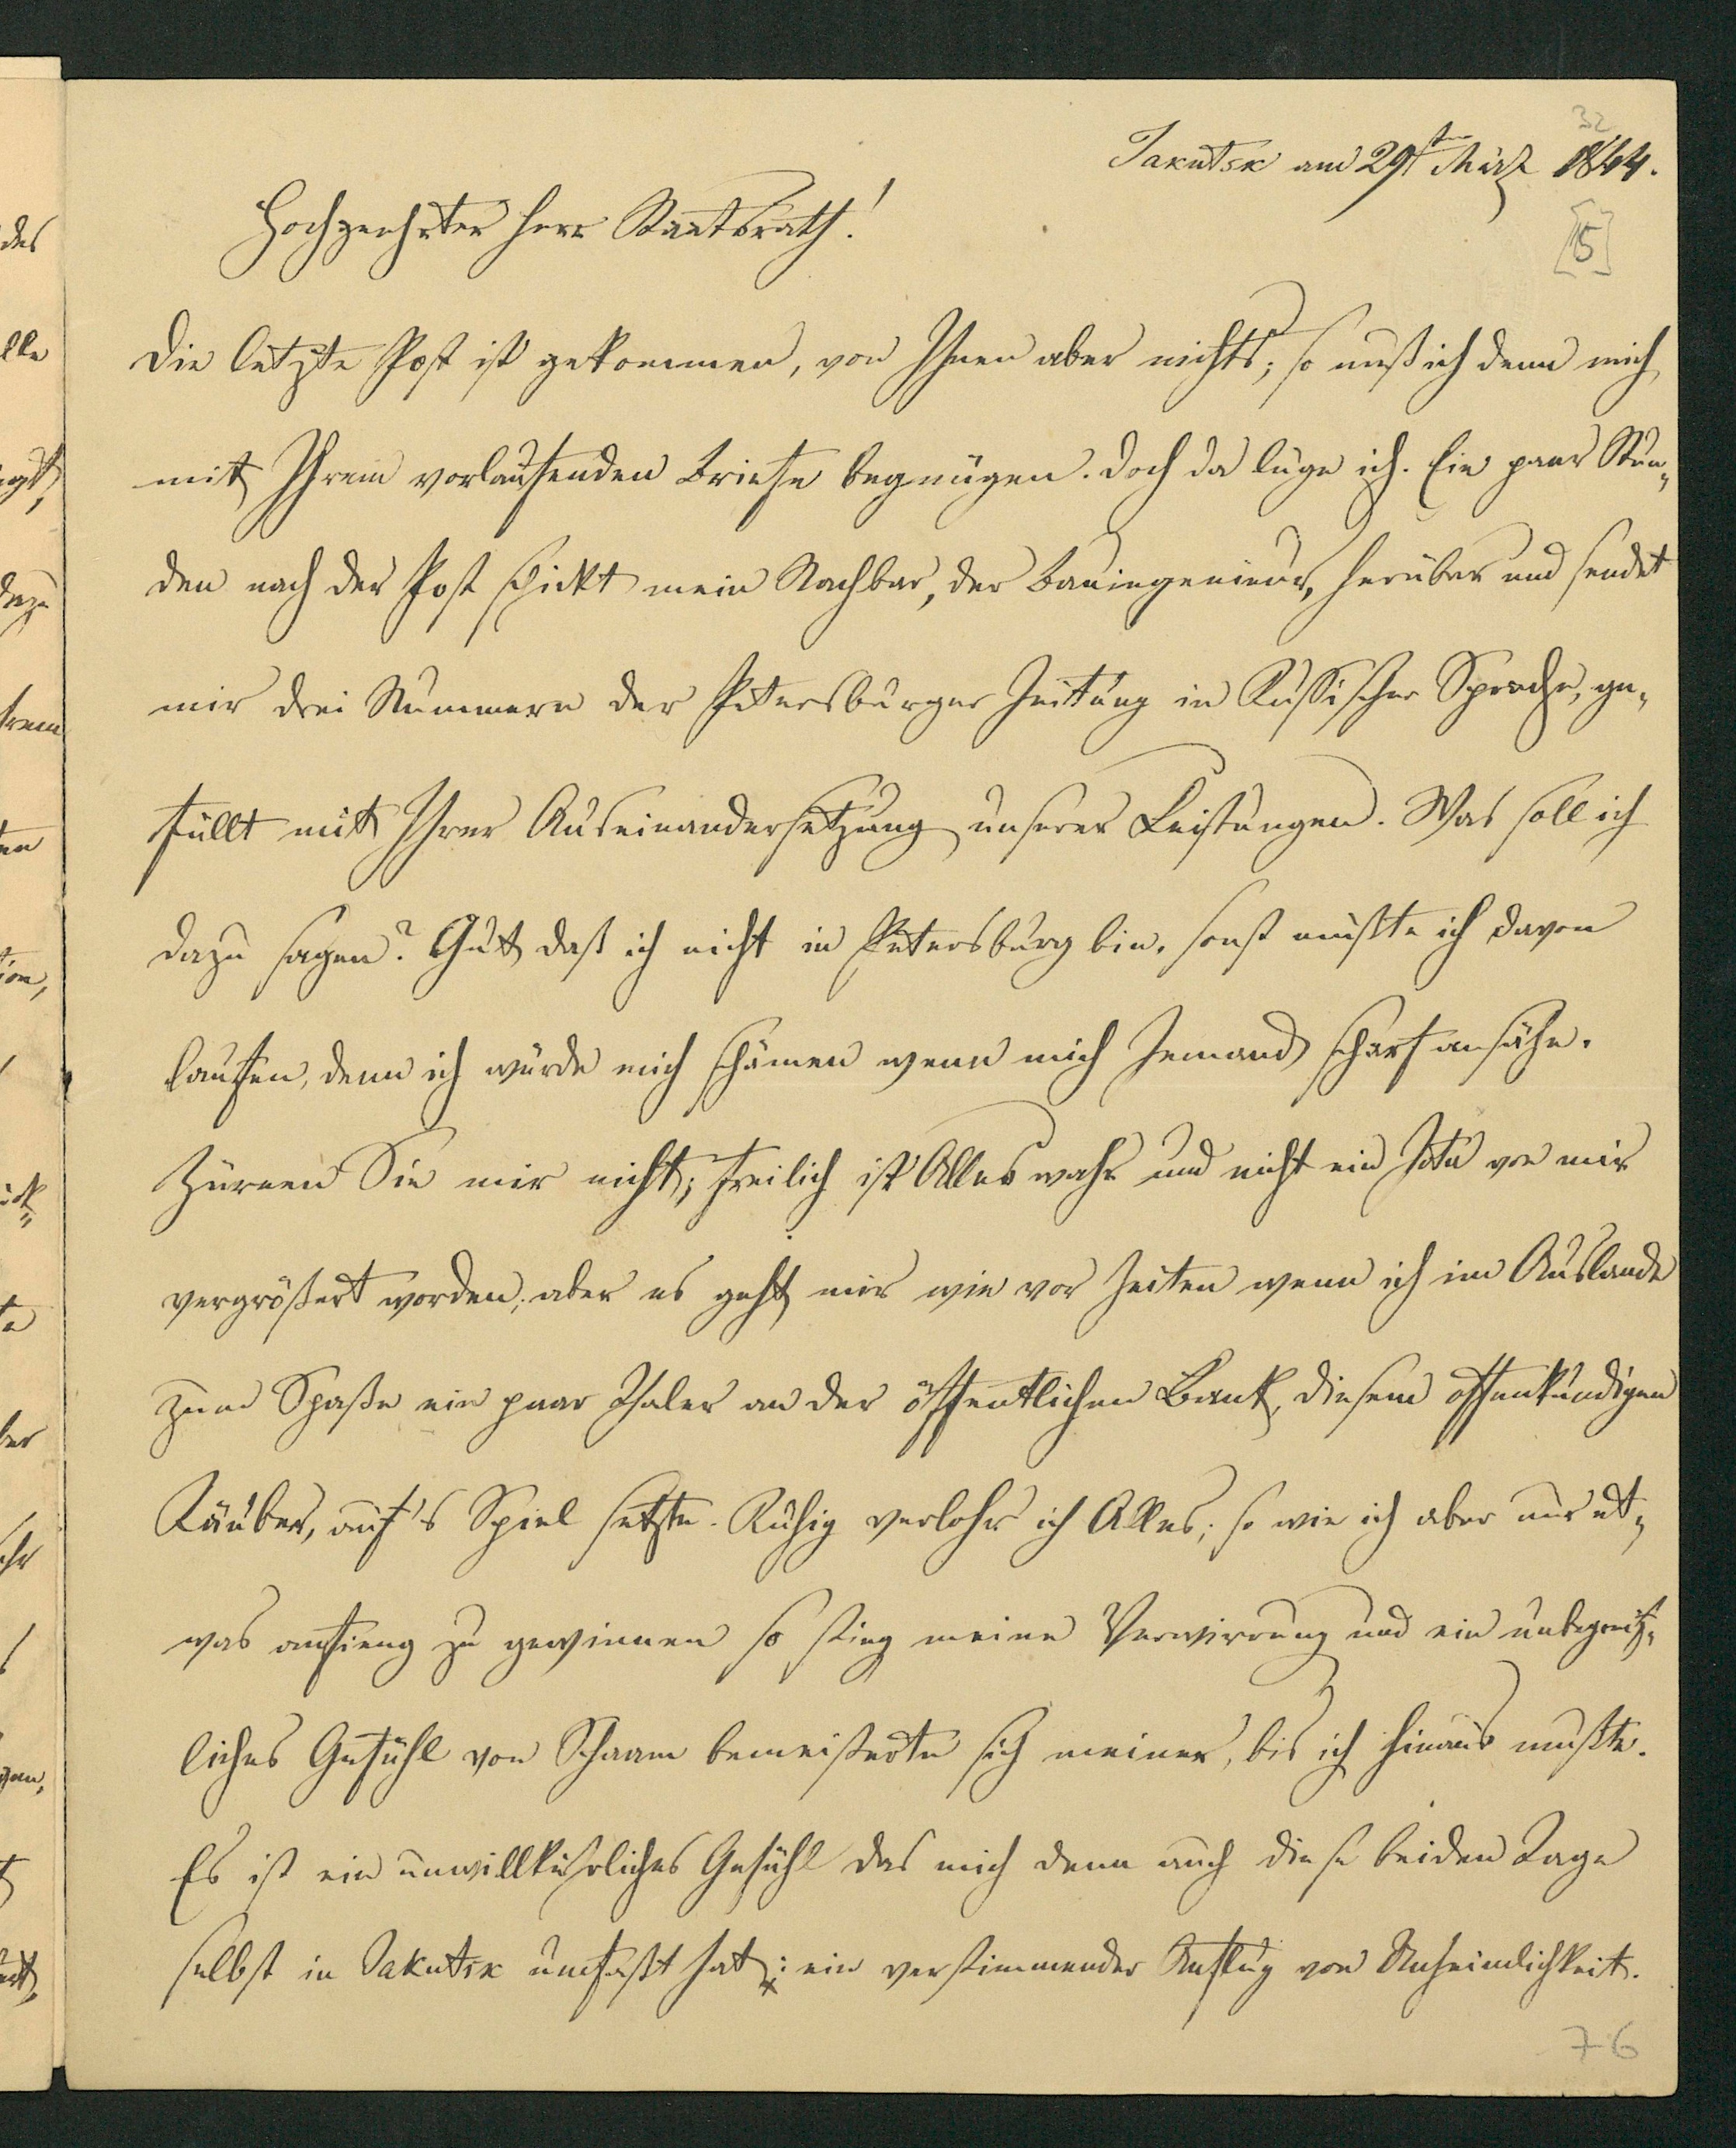 32
Jakutsk am 29sten März 1844.
Hochgeehrter Herr Staatsrath!
[15]
Die letzte Post ist gekommen, von Ihnen aber nichts; so muß ich denn mich
mit Ihrem vorlaufenden Briefe begnügen. Doch da lüge ich. Ein paar Stun-
den nach der Post schickt mein Nachbar, der Bauingenieur, herüber und sendet
mir drei Nummern der Petersburger Zeitung in Russischer Sprache, ge-
füllt mit Ihrer Auseinandersetzung unserer Leistungen. Was soll ich
dazu sagen? Gut daß ich nicht in Petersburg bin, sonst müßte ich davon
laufen, denn ich würde mich schämen wenn mich Jemand scharf ansähe.
Zürnen Sie mir nicht; freilich ist Alles wahr und nicht ein Jota von mir
vergrößert worden; aber es geht mir wie vor Zeiten wenn ich im Auslande
zum Spaße ein paar Thaler an der öffentlichen Bank, diesem offenkundigen
Räuber, auf's Spiel setzte. Ruhig verlohr ich Alles; so wie ich aber nur et-
was anfieng zu gewinnen so stieg meine Verwirrung und ein unbegreif-
liches Gefühl von Schaam bemeisterte sich meiner, bis ich hinaus mußte.
Es ist ein unwillkührliches Gefühl das mich denn auch diese beiden Tage
selbst in Jakutsk umfaßt hat: ein verstimmender Anflug von Unheimlichkeit.
76
des
lle
dazu
hrem
ten
tion,
ück-
te
ber
ehr